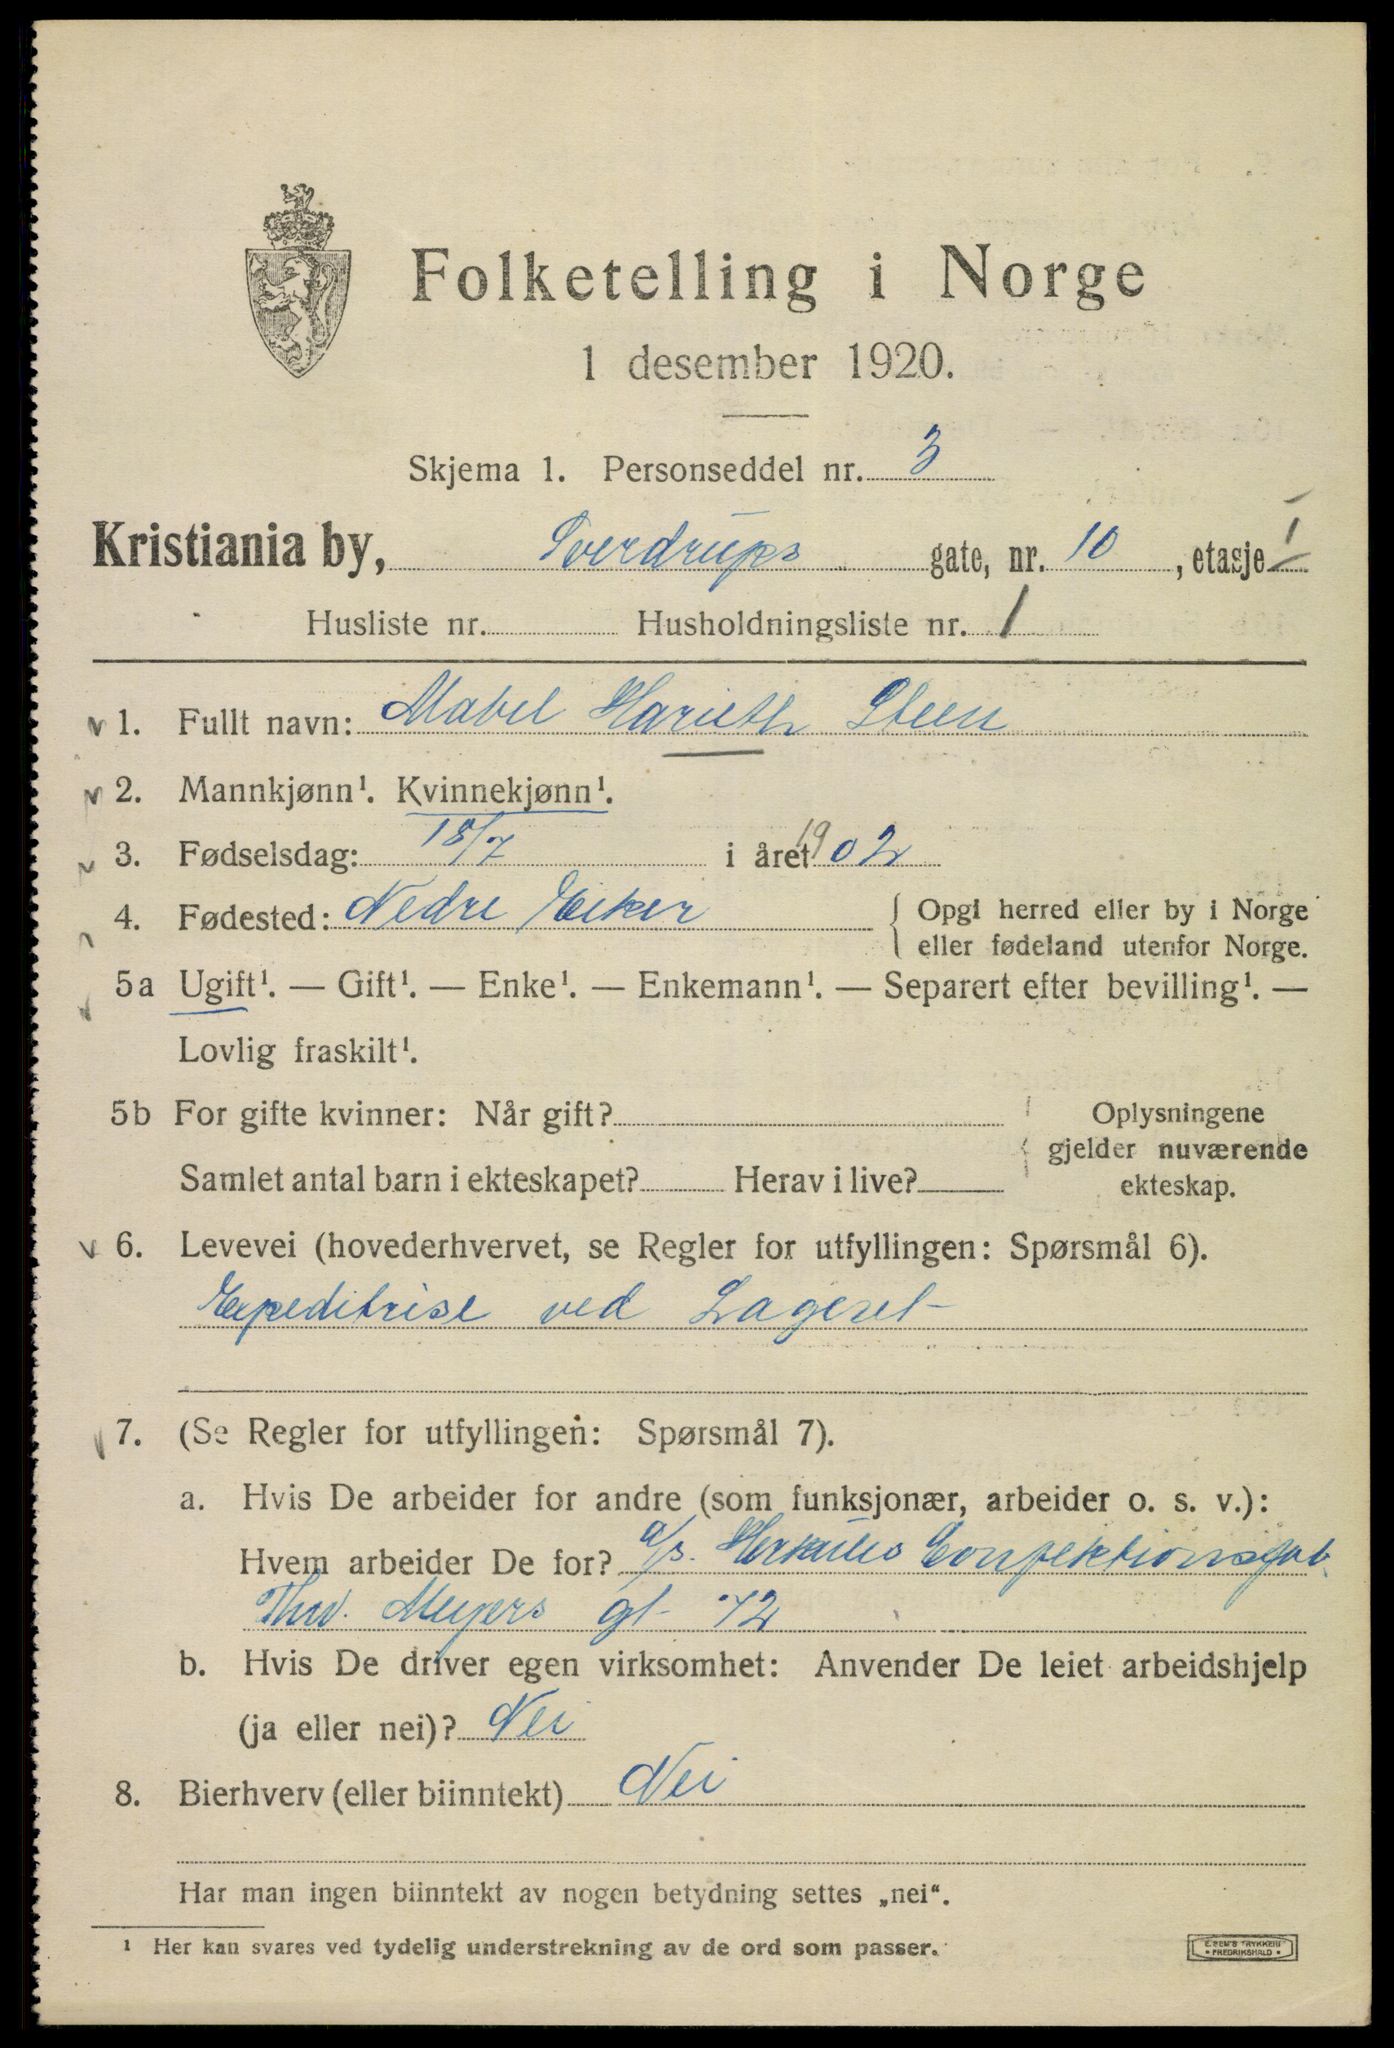 Folketelling i Norge
1 desember 1920.
Skjema 1. Personseddel nr. 3
Kristiania by, Sverdrups gate, nr. 10, etasje I
Husliste nr. Husholdningsliste nr. 1
1. Fullt navn: Mabel Harieth Steen
2. Mannkjønn¹. Kvinnekjønn¹.
3. Fødselsdag: 18/7 i året 1902
4. Fødested: Nedre Eeker { Opgi herred eller by i Norge
eller fødeland utenfor Norge.
5a Ugift¹. — Gift¹. — Enke¹. — Enkemann¹. — Separert efter bevilling¹. —
Lovlig fraskilt¹.
5b For gifte kvinner: Når gift? Oplysningene
gjelder nuværende
Samlet antal barn i ekteskapet? Herav i live? ekteskap.
6. Levevei (hovederhvervet, se Regler for utfyllingen: Spørsmål 6).
Expeditrise ved Lageret
7. (Se Regler for utfyllingen: Spørsmål 7).
a. Hvis De arbeider for andre (som funksjonær, arbeider o. s. v.):
Hvem arbeider De for? a/s. Herkules Confektionsfab.
Thv. Meyers gt 72
b. Hvis De driver egen virksomhet: Anvender De leiet arbeidshjelp
(ja eller nei)? Nei
8. Bierhverv (eller biinntekt) Nei
Har man ingen biinntekt av nogen betydning settes „nei“.
¹ Her kan svares ved tydelig understrekning av de ord som passer.
FREDRIKSHALD